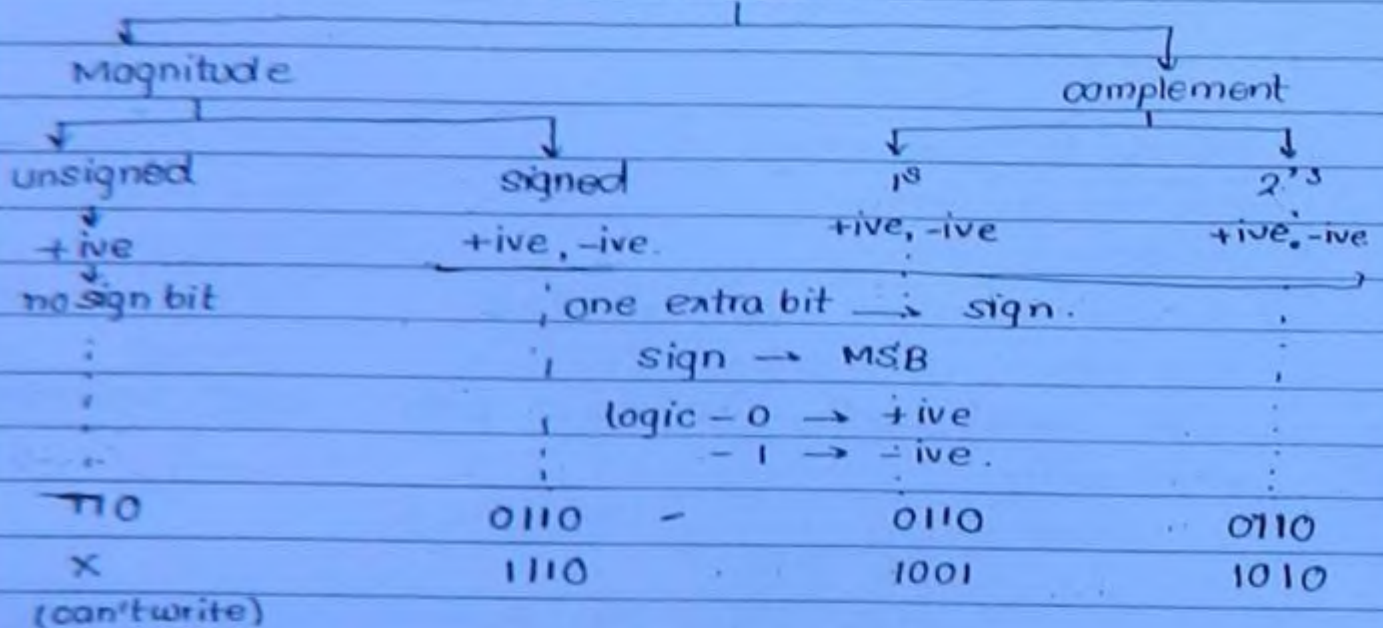 Magnitude complement
unsigned signed 1s 2's
+ive +ive, -ive. +ive, -ive +ive, -ive
no sign bit one extra bit → sign.
sign → MSB
logic - 0 → +ive
- 1 → -ive.
110 0110 - 0110 0110
× 1110 1001 1010
(can't write)